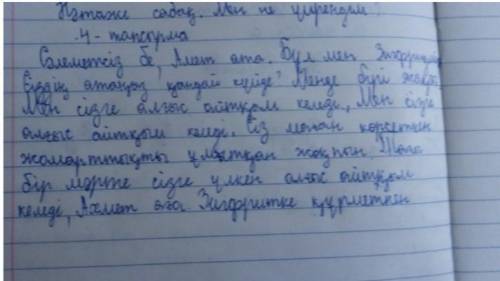 Нәтиже сабақ. Мен не үйрендім?
4 - тапсырма
Сәлеметсіз бе, Ахмет ата. Бұл мен Зигфрид
Сіздің қандай күйде? Менде бәрі жақсы.
Мен сізге алғыс айтқым келеді, Мен сізге
алғыс айтқым келеді. Сіз маған көрсеткен
жомарттықты ұмытқан жоқпын. Тағы
бір мәрте сізге үлкен алғыс айтқым
келеді, Ахмет ата. Зигфридтке құрметпен